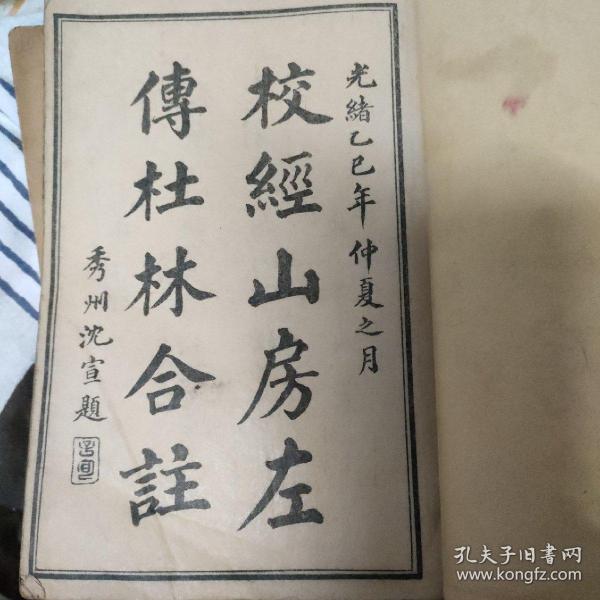 光緒乙巳年仲夏之月
校經山房左
傳杜林合註
秀州沈宣題
孔夫子旧书网
www.kongfz.com